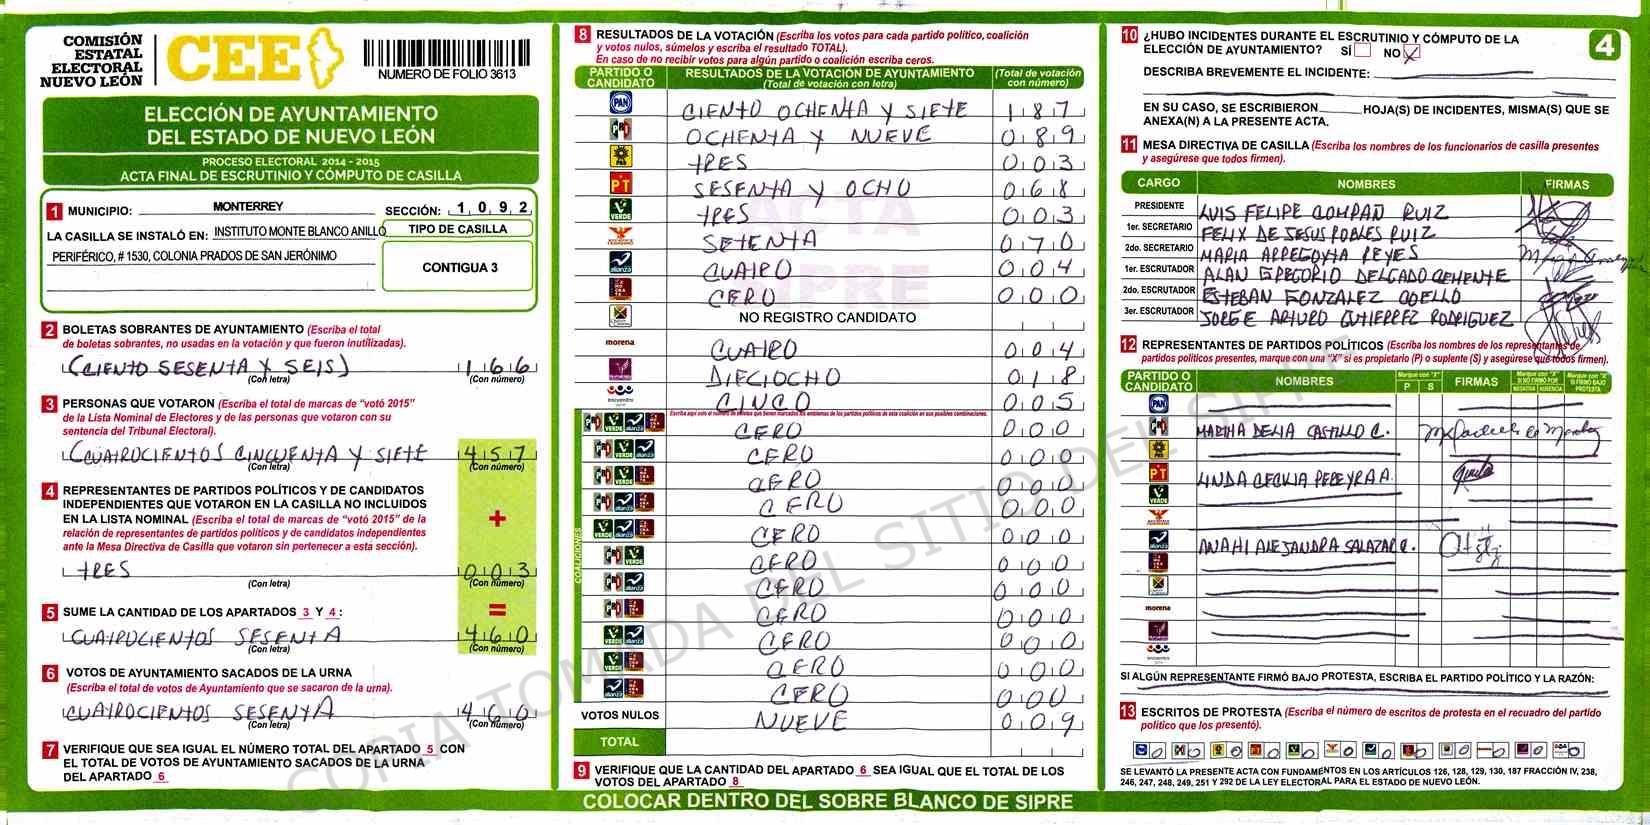 COMISIÓN
ESTATAL
ELECTORAL
NUEVO LEÓN
CEE
NUMERO DE FOLIO 3613
ELECCIÓN DE AYUNTAMIENTO
DEL ESTADO DE NUEVO LEÓN
PROCESO ELECTORAL 2014 - 2015
ACTA FINAL DE ESCRUTINIO Y CÓMPUTO DE CASILLA
1 MUNICIPIO: MONTERREY SECCIÓN: 1 0 9 2
LA CASILLA SE INSTALÓ EN: INSTITUTO MONTE BLANCO ANILLO
TIPO DE CASILLA
PERIFÉRICO, # 1530, COLONIA PRADOS DE SAN JERÓNIMO
CONTIGUA 3
2 BOLETAS SOBRANTES DE AYUNTAMIENTO (Escriba el total
de boletas sobrantes, no usadas en la votación y que fueron inutilizadas).
(CIENTO SESENTA Y SEIS) 1 6 6
(Con letra) (Con número)
3 PERSONAS QUE VOTARON (Escriba el total de marcas de "votó 2015"
de la Lista Nominal de Electores y de las personas que votaron con su
sentencia del Tribunal Electoral).
(CUATROCIENTOS CINCUENTA Y SIETE 4 5 7
(Con letra) (Con número)
4 REPRESENTANTES DE PARTIDOS POLÍTICOS Y DE CANDIDATOS
INDEPENDIENTES QUE VOTARON EN LA CASILLA NO INCLUIDOS
EN LA LISTA NOMINAL (Escriba el total de marcas de "votó 2015" de la
relación de representantes de partidos políticos y de candidatos independientes
ante la Mesa Directiva de Casilla que votaron sin pertenecer a esta sección).
+
TRES 0 0 3
(Con letra) (Con número)
5 SUME LA CANTIDAD DE LOS APARTADOS 3 Y 4:
=
CUATROCIENTOS SESENTA 4 6 0
(Con letra) (Con número)
6 VOTOS DE AYUNTAMIENTO SACADOS DE LA URNA
(Escriba el total de votos de Ayuntamiento que se sacaron de la urna).
CUATROCIENTOS SESENTA 4 6 0
(Con letra) (Con número)
7 VERIFIQUE QUE SEA IGUAL EL NÚMERO TOTAL DEL APARTADO 5 CON
EL TOTAL DE VOTOS DE AYUNTAMIENTO SACADOS DE LA URNA
DEL APARTADO 6
8 RESULTADOS DE LA VOTACIÓN (Escriba los votos para cada partido político, coalición
y votos nulos, súmelos y escriba el resultado TOTAL).
En caso de no recibir votos para algún partido o coalición escriba ceros.
PARTIDO O CANDIDATO RESULTADOS DE LA VOTACIÓN DE AYUNTAMIENTO (Total de votación con letra) (Total de votación con número)
PAN CIENTO OCHENTA Y SIETE 1 8 7
PRD OCHENTA Y NUEVE 0 8 9
PRD TRES 0 0 3
PT SESENTA Y OCHO 0 6 8
VERDE TRES 0 0 3
SETENTA 0 7 0
alianza CUATRO 0 0 4
CERO 0 0 0
NO REGISTRO CANDIDATO
morena CUATRO 0 0 4
DIECIOCHO 0 1 8
encuentro CINCO 0 0 5
Escriba aquí solo el número de boletas que tienen marcados los emblemas de los partidos políticos de esta coalición en sus posibles combinaciones.
COALICIONES
CERO 0 0 0
CERO 0 0 0
CERO 0 0 0
CERO 0 0 0
CERO 0 0 0
CERO 0 0 0
CERO 0 0 0
CERO 0 0 0
CERO 0 0 0
CERO 0 0 0
CERO 0 0 0
VOTOS NULOS NUEVE 0 0 9
TOTAL
9 VERIFIQUE QUE LA CANTIDAD DEL APARTADO 6 SEA IGUAL QUE EL TOTAL DE LOS
VOTOS DEL APARTADO 8
COLOCAR DENTRO DEL SOBRE BLANCO DE SIPRE
ACTA
SIPRE
COPIA TOMADA DEL SITIO DEL SIPRE
10 ¿HUBO INCIDENTES DURANTE EL ESCRUTINIO Y CÓMPUTO DE LA
ELECCIÓN DE AYUNTAMIENTO? SÍ NO X
4
DESCRIBA BREVEMENTE EL INCIDENTE:
EN SU CASO, SE ESCRIBIERON HOJA(S) DE INCIDENTES, MISMA(S) QUE SE
ANEXA(N) A LA PRESENTE ACTA.
11 MESA DIRECTIVA DE CASILLA (Escriba los nombres de los funcionarios de casilla presentes
y asegúrese que todos firmen).
CARGO NOMBRES FIRMAS
PRESIDENTE LUIS FELIPE COMPAÑ RUIZ
1er. SECRETARIO FELIX DE JESUS ROBLES RUIZ
2do. SECRETARIO MARIA ARREGOYTA REYES
1er. ESCRUTADOR ALAN GREGORIO DELGADO CLEMENTE
2do. ESCRUTADOR ESTEBAN GONZALEZ COELLO
3er. ESCRUTADOR JORGE ARTURO GUTIERREZ RODRIGUEZ
12 REPRESENTANTES DE PARTIDOS POLÍTICOS (Escriba los nombres de los representantes de
partidos políticos presentes, marque con una "X" si es propietario (P) o suplente (S) y asegúrese que todos firmen).
PARTIDO O CANDIDATO NOMBRES Marque con "X" P S FIRMAS Marque con "X" SI NO FIRMÓ POR NEGATIVA AUSENCIA Marque con "X" SI FIRMÓ BAJO PROTESTA
PAN
MARTHA DELIA CASTILLO C.
PRD
PT LINDA CECILIA PEREYRA A.
VERDE
alianza ANAHI ALEJANDRA SALAZAR C.
morena
encuentro
SI ALGÚN REPRESENTANTE FIRMÓ BAJO PROTESTA, ESCRIBA EL PARTIDO POLÍTICO Y LA RAZÓN:
13 ESCRITOS DE PROTESTA (Escriba el número de escritos de protesta en el recuadro del partido
político que los presentó).
0 0 0 0 0 0 0 0 0 0 0 0
SE LEVANTÓ LA PRESENTE ACTA CON FUNDAMENTOS EN LOS ARTÍCULOS 126, 128, 129, 130, 187 FRACCIÓN IV, 238,
246, 247, 248, 249, 251 Y 292 DE LA LEY ELECTORAL PARA EL ESTADO DE NUEVO LEÓN.